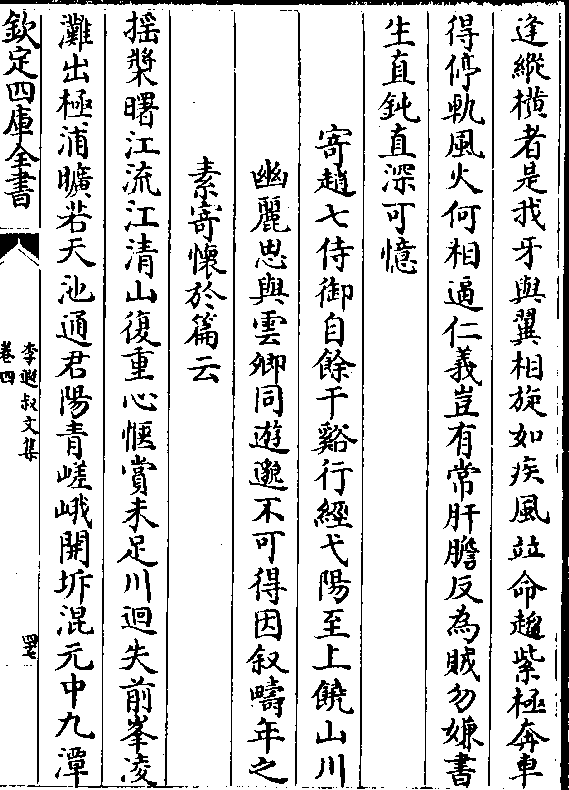 逢縱橫者是我牙與翼相旋如疾風竝命趨紫極奔車
得停軌風火何相逼仁義豈有常肝膽反為賊勿嫌書
生直鈍直深可憶
寄趙七侍御自餘干谿行經弋陽至上饒山川
幽麗思與雲卿同遊邈不可得因叙疇年之
素寄懷於篇云
揺槳曙江流江清山復重心愜賞未足川迴失前峯凌
灘出極浦曠若天池通君陽青嵯峨開坼混元中九潭
欽定四庫全書
李遐叔文集
卷四